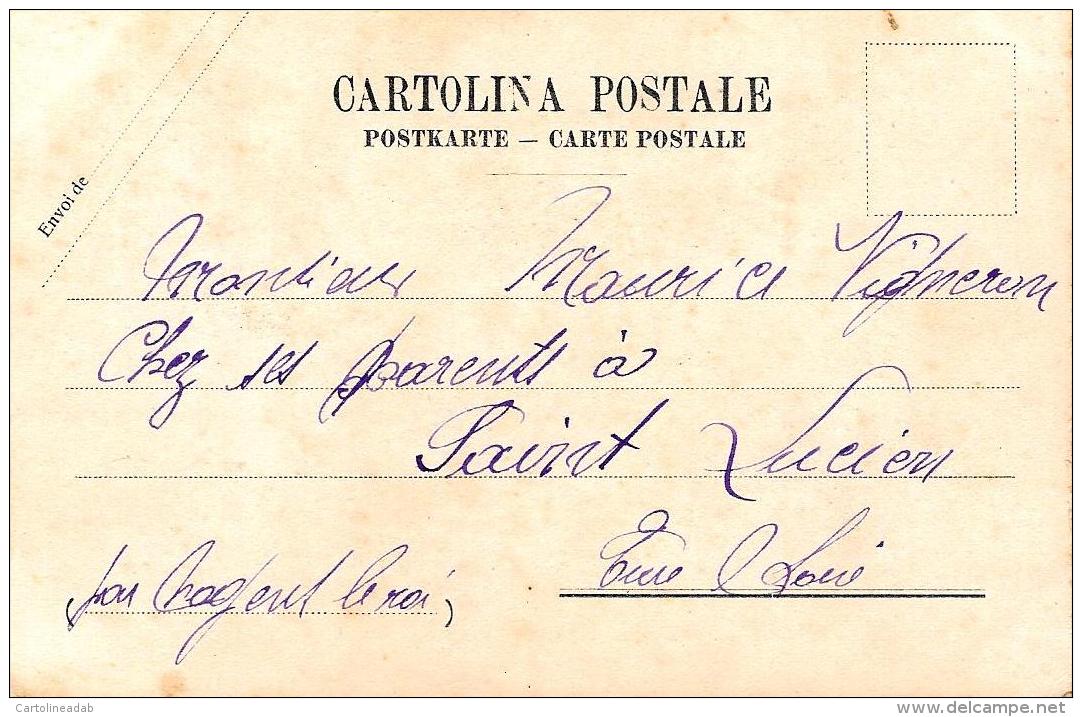 CARTOLINA POSTALE
POSTKARTE — CARTE POSTALE
Envoi de
Monsieur Maurice Vigneron
Chez ses parents à
Saint Lucien
Eure & Loir
(par Nogent le roi)
Cartolineadab
www.delcampe.net